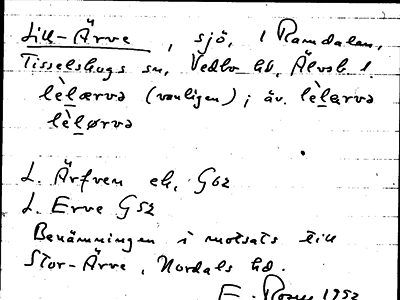 Lill-Ärve, sjö, i Ramdalen,
Tisselskogs sn, Vedbo hd, Älvsb. l.
lèlærvə (vanligen); äv. lèlɐrvə
lèlørvə
L. Ärfven ek. G62
L. Erve G52
Benämningen i motsats till
Stor-Ärve, Nordals hd.
E. Rosell 1952